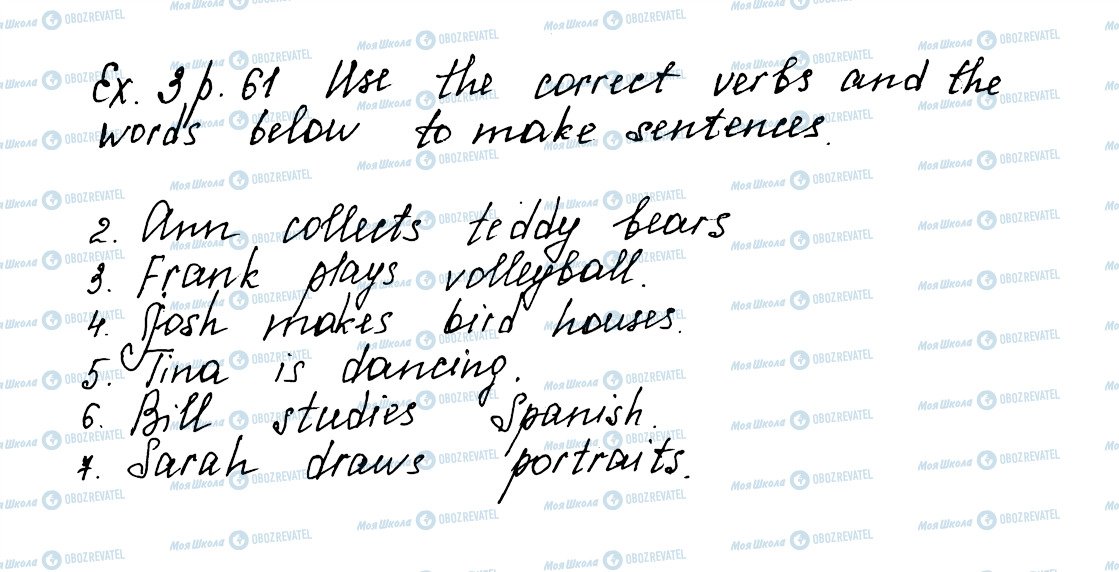 Ex. 3 p. 61 Use the correct verbs and the
words below to make sentences.
2. Ann collects teddy bears
3. Frank plays volleyball.
4. Josh makes bird houses.
5. Tina is dancing.
6. Bill studies Spanish.
7. Sarah draws portraits.
Моя Школа OBOZREVATEL